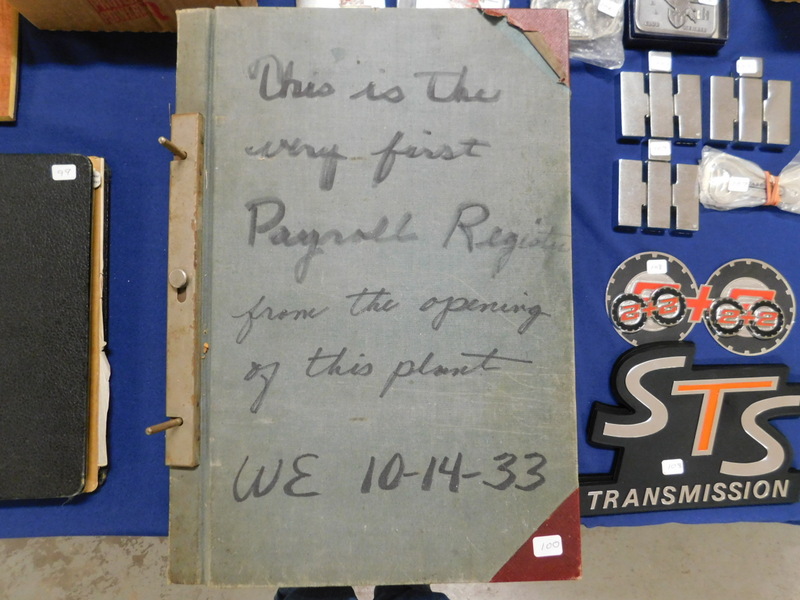 This is the
very first
Payroll Register
from the opening
of this plant
WE 10-14-33
100
3+3
+
2+2
STS
TRANSMISSION